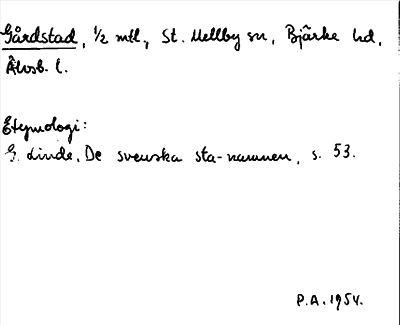 Gårdstad, ½ mtl., St. Mellby sn, Bjärke hd,
Älvsb. l.
Etymologi:
G. Linde, De svenska sta-namnen, s. 53.
P.A. 1954.